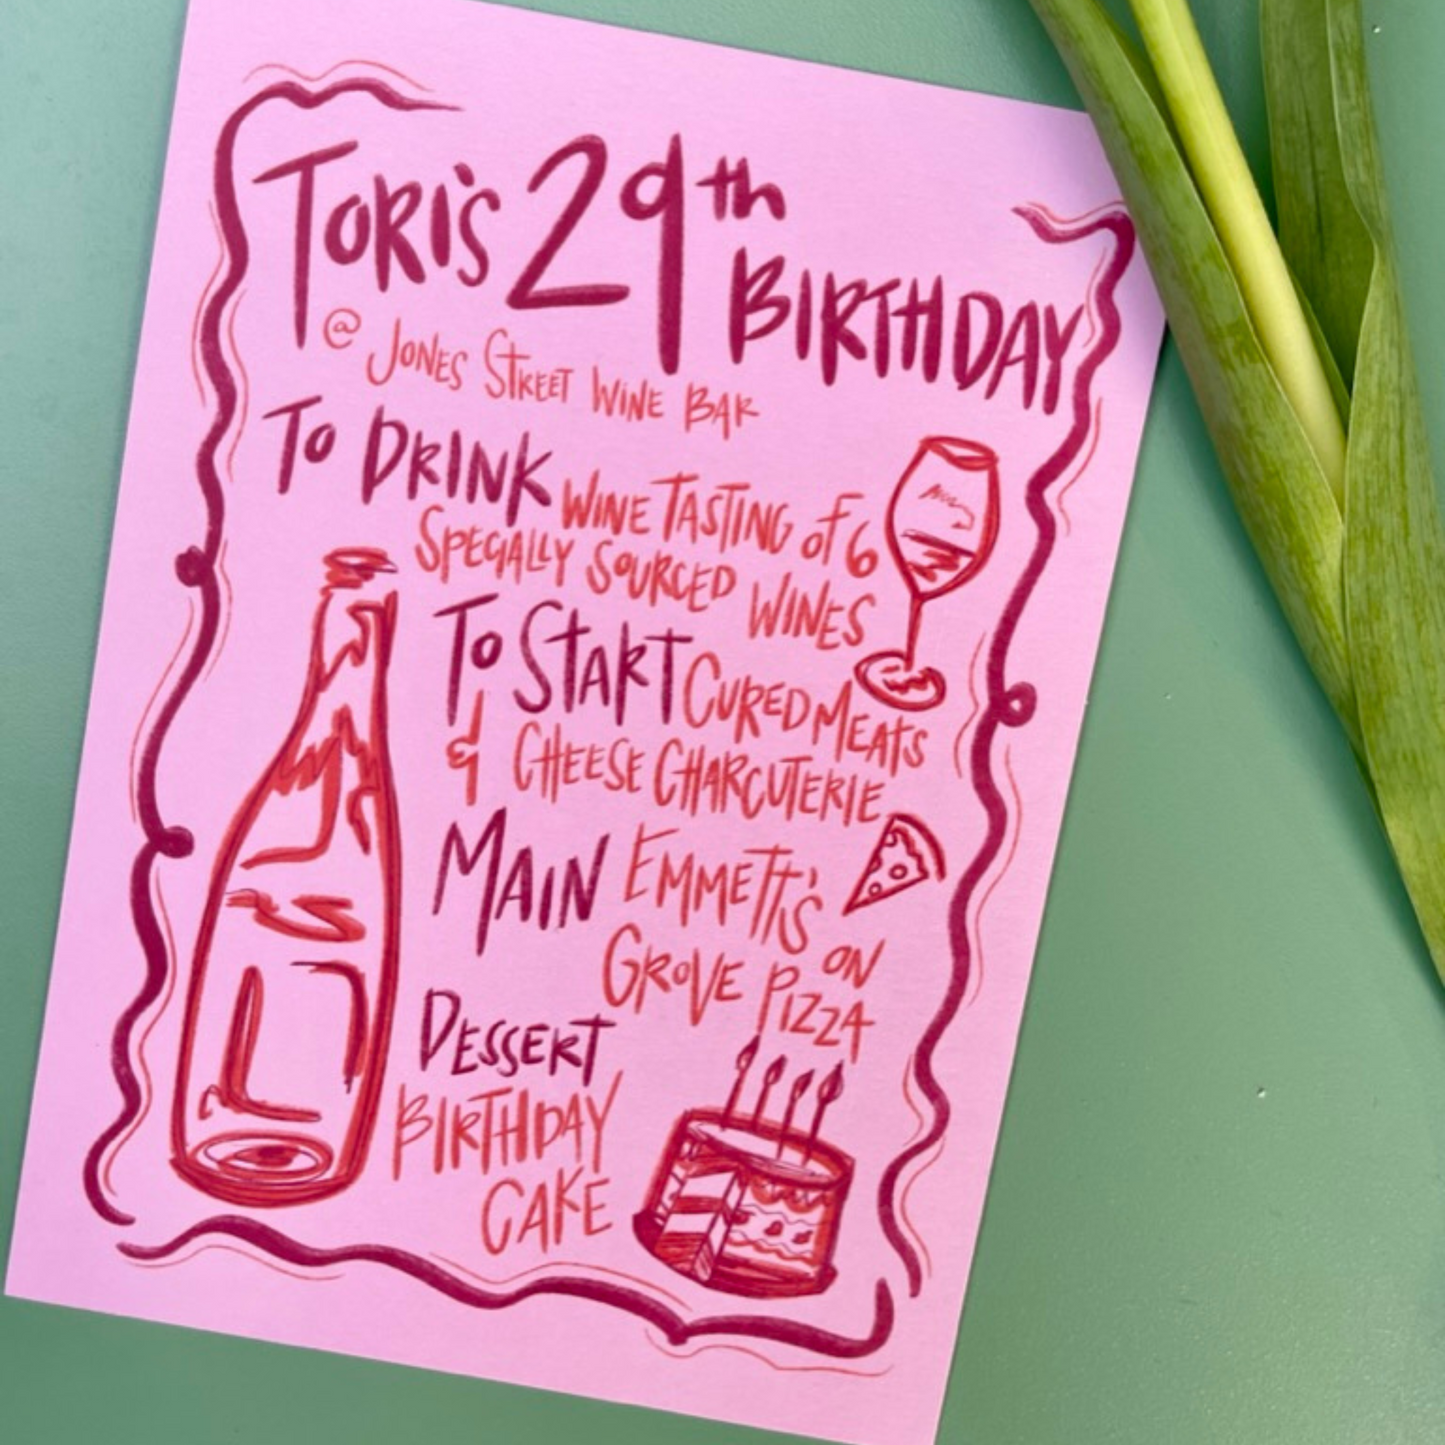 TORI'S 29th
BIRTHDAY
@ JONES STREET WINE BAR
TO DRINK WINE TASTING OF 6
SPECIALLY SOURCED WINES
TO START CURED MEATS
& CHEESE CHARCUTERIE
MAIN EMMETT'S ON
GROVE PIZZA
DESSERT
BIRTHDAY
CAKE